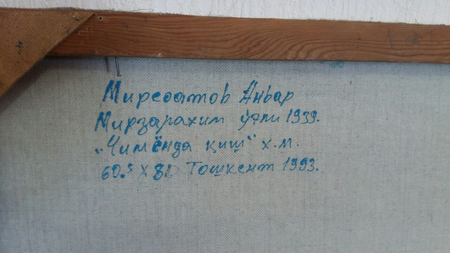 Мирсоатов Анвар
Мирзарахим ўғли 1939.
„Чимёнда қиш" х.м.
60.5 х 80 Тошкент 1993.